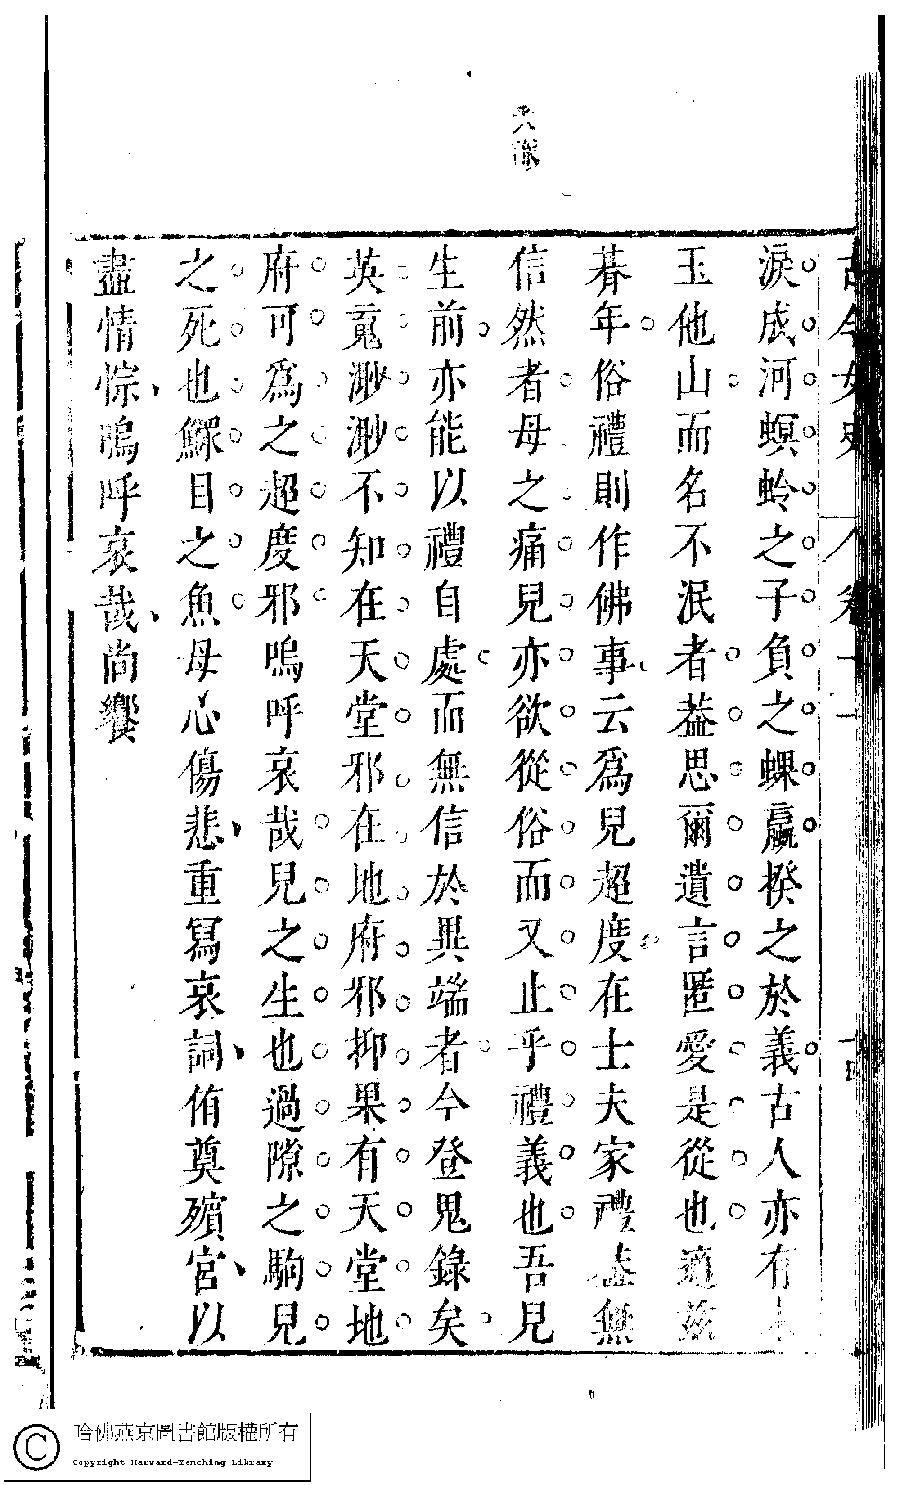 古今女史　卷十一　十四
淚成河螟蛉之子負之蜾蠃揆之於義古人亦有
玉他山而名不泯者葢思爾遺言匿愛是從也適茲
朞年俗禮則作佛事云爲兒超度在士夫家禮葢無
信然者母之痛兒亦欲從俗而又止乎禮義也吾兒
生前亦能以禮自處而無信於異端者今登鬼錄矣
英䰟渺渺不知在天堂邪在地府邪抑果有天堂地
府可爲之超度邪嗚呼哀哉兒之生也過隙之駒兒
之死也鰥目之魚母心傷悲重冩哀詞侑奠殯宮以
盡情悰嗚呼哀哉尚饗
哈佛燕京圖書館版權所有
Copyright Harvard-Yenching Library